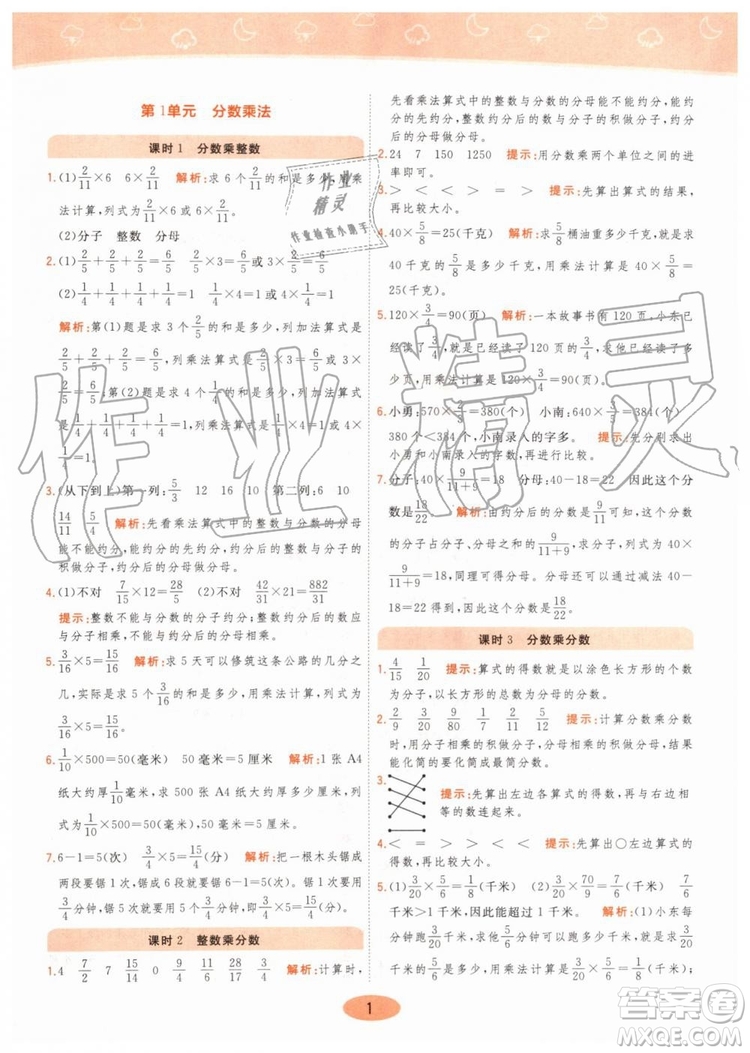 第1单元 分数乘法
课时1 分数乘整数
1.(1)2/11×6 6×2/11 解析:求6个2/11的和是多少,用乘
法计算,列式为2/11×6或6×2/11。
(2)分子 整数 分母
2.(1)2/5+2/5+2/5=6/5 2/5×3=6/5或3×2/5=6/5
(2)1/4+1/4+1/4+1/4=1 1/4×4=1或4×1/4=1
解析:第(1)题是求3个2/5的和是多少,列加法算式是
2/5+2/5+2/5=6/5,列乘法算式是2/5×3=6/5或3×
2/5=6/5;第(2)题是求4个1/4的和是多少,列加法算式
是1/4+1/4+1/4+1/4=1,列乘法算式是1/4×4=1或4×
1/4=1。
3.(从下到上)第一列:5/3 12 16 第二列:6 10
14/11 5/4 解析:先看乘法算式中的整数与分数的分母
能不能约分,能约分的先约分,整数约分后的数与分子的
积做分子,分母约分后的数做分母。
4.(1)不对 7/15×12=28/5 (2)不对 42/31×21=882/31
提示:整数不能与分数的分子约分。整数约分后的数应
与分子相乘,不能与分母相乘。
5.3/16×5=15/16 解析:求5天可以修筑这条公路的几分之
几,实际是求5个3/16的和是多少,用乘法计算,列式为
3/16×5=15/16。
6.1/10×500=50(毫米) 50毫米=5厘米 解析:1张A4
纸大约厚1/10毫米,求500张A4纸大约厚多少厘米,就
是求500个1/10毫米是多少,用乘法计算,列式为1/10×
500=50(毫米),50毫米=5厘米。
7.6-1=5(次) 3/4×5=15/4(分) 解析:把一根木头锯成
两段要锯1次,锯成6段要锯6-1=5(次)。每锯1次要
3/4分钟,锯5次就要5个3/4分钟,用乘法计算。
课时2 整数乘分数
1.4 7/2 7 14/15 0 9/4 15/2 解析:计算时,
先看乘法算式中的整数与分数的分母能不能约分,能约
分的先约分,整数约分后的数与分子的积做分子,分母约
分后的数做分母。
2.24 7 150 1250 提示:用分数乘两个单位之间的进
率即可。
3.> < < > = 提示:先算出算式的结果,
再比较大小。
4.40×5/8=25(千克) 解析:求5/8桶油重多少千克,就是求
40千克的5/8是多少千克,用乘法计算,列式为40×5/8=
25(千克)。
5.120×3/4=90(页) 解析:一本故事书有120页,小东已
经读了3/4,就是已经读了120页的3/4,求他已经读了多
少页,用乘法计算,列式为120×3/4=90(页)。
6.小勇:570×2/3=380(个) 小南:640×3/5=384(个)
380个<384个,小南录入的字多。 提示:先分别求出
小勇与小南录入的字数,再进行比较。
7.分子:40×9/11+9=18 分母:40-18=22 因此这个分
数是18/22 解析:由约分后的分数是9/11可知,这个分数
的分子占分子、分母之和的9/11+9,因此这个分子是40×
9/11+9=18,同理可得分母,也可以这样求分母:40-
18=22。因此这个分数是18/22。
课时3 分数乘分数
1.4/15 1/20 提示:算式的得数就是以涂色长方形的个数
为分子,以长方形的总数为分母的分数。
2.2/9 3/20 7/9 1/4 1/2 5/3 提示:计算分数乘分数
时,用分子相乘的积做分子,分母相乘的积做分母。结果
能化简的要化简成最简分数。
3. 提示:先算出左边各算式的得数,再与右边相
等的数连起来。
4.< = > < = < 提示:先算出○左边算式的
得数,再比较。
5.(1)3/20×2/3=1/10(千米) (2)3/20×5/6=1/8(千米) 7/6
千米>1千米 因此能超过1千米。 解析:(1)小东每
分钟跑3/20千米,求2/3分钟可以跑多少千米,就是求3/20千
米的2/3是多少千米,用乘法计算,列式为3/20×2/3=
1